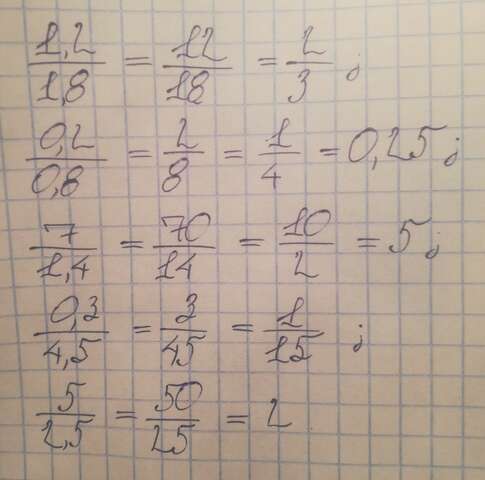 1,2/1,8 = 12/18 = 2/3 ;
0,2/0,8 = 2/8 = 1/4 = 0,25 ;
7/1,4 = 70/14 = 10/2 = 5 ;
0,3/4,5 = 3/45 = 1/15 ;
5/2,5 = 50/25 = 2